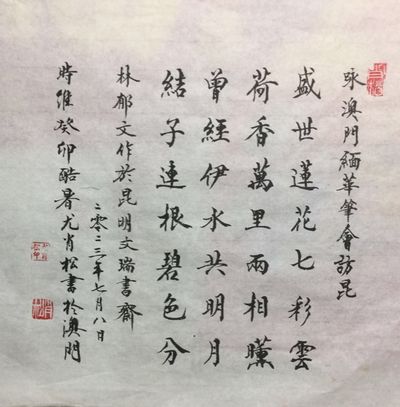 咏澳門緬華筆會訪昆
盛世蓮花七彩雲
荷香萬里兩相薰
曾經伊水共明月
結子連根碧色分
林郁文作於昆明文瑞書齋
二零二三年七月八日
時維癸卯酷暑尤肖松書於澳門